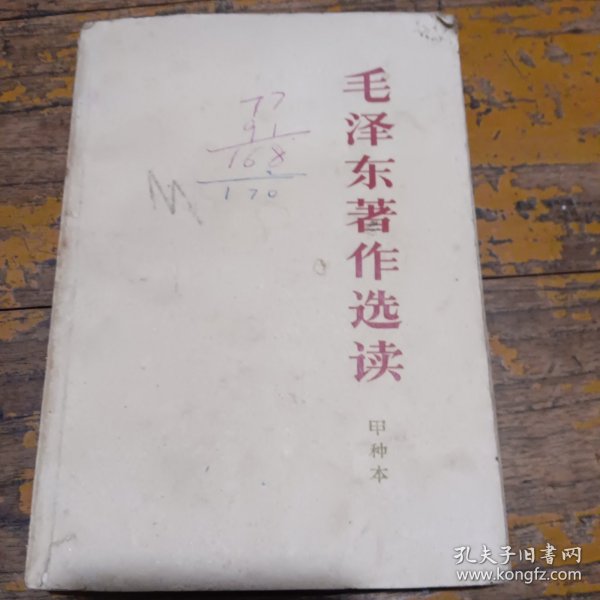 毛泽东著作选读
甲种本
77
91
168
2
170
M
孔夫子旧书网
www.kongfz.com